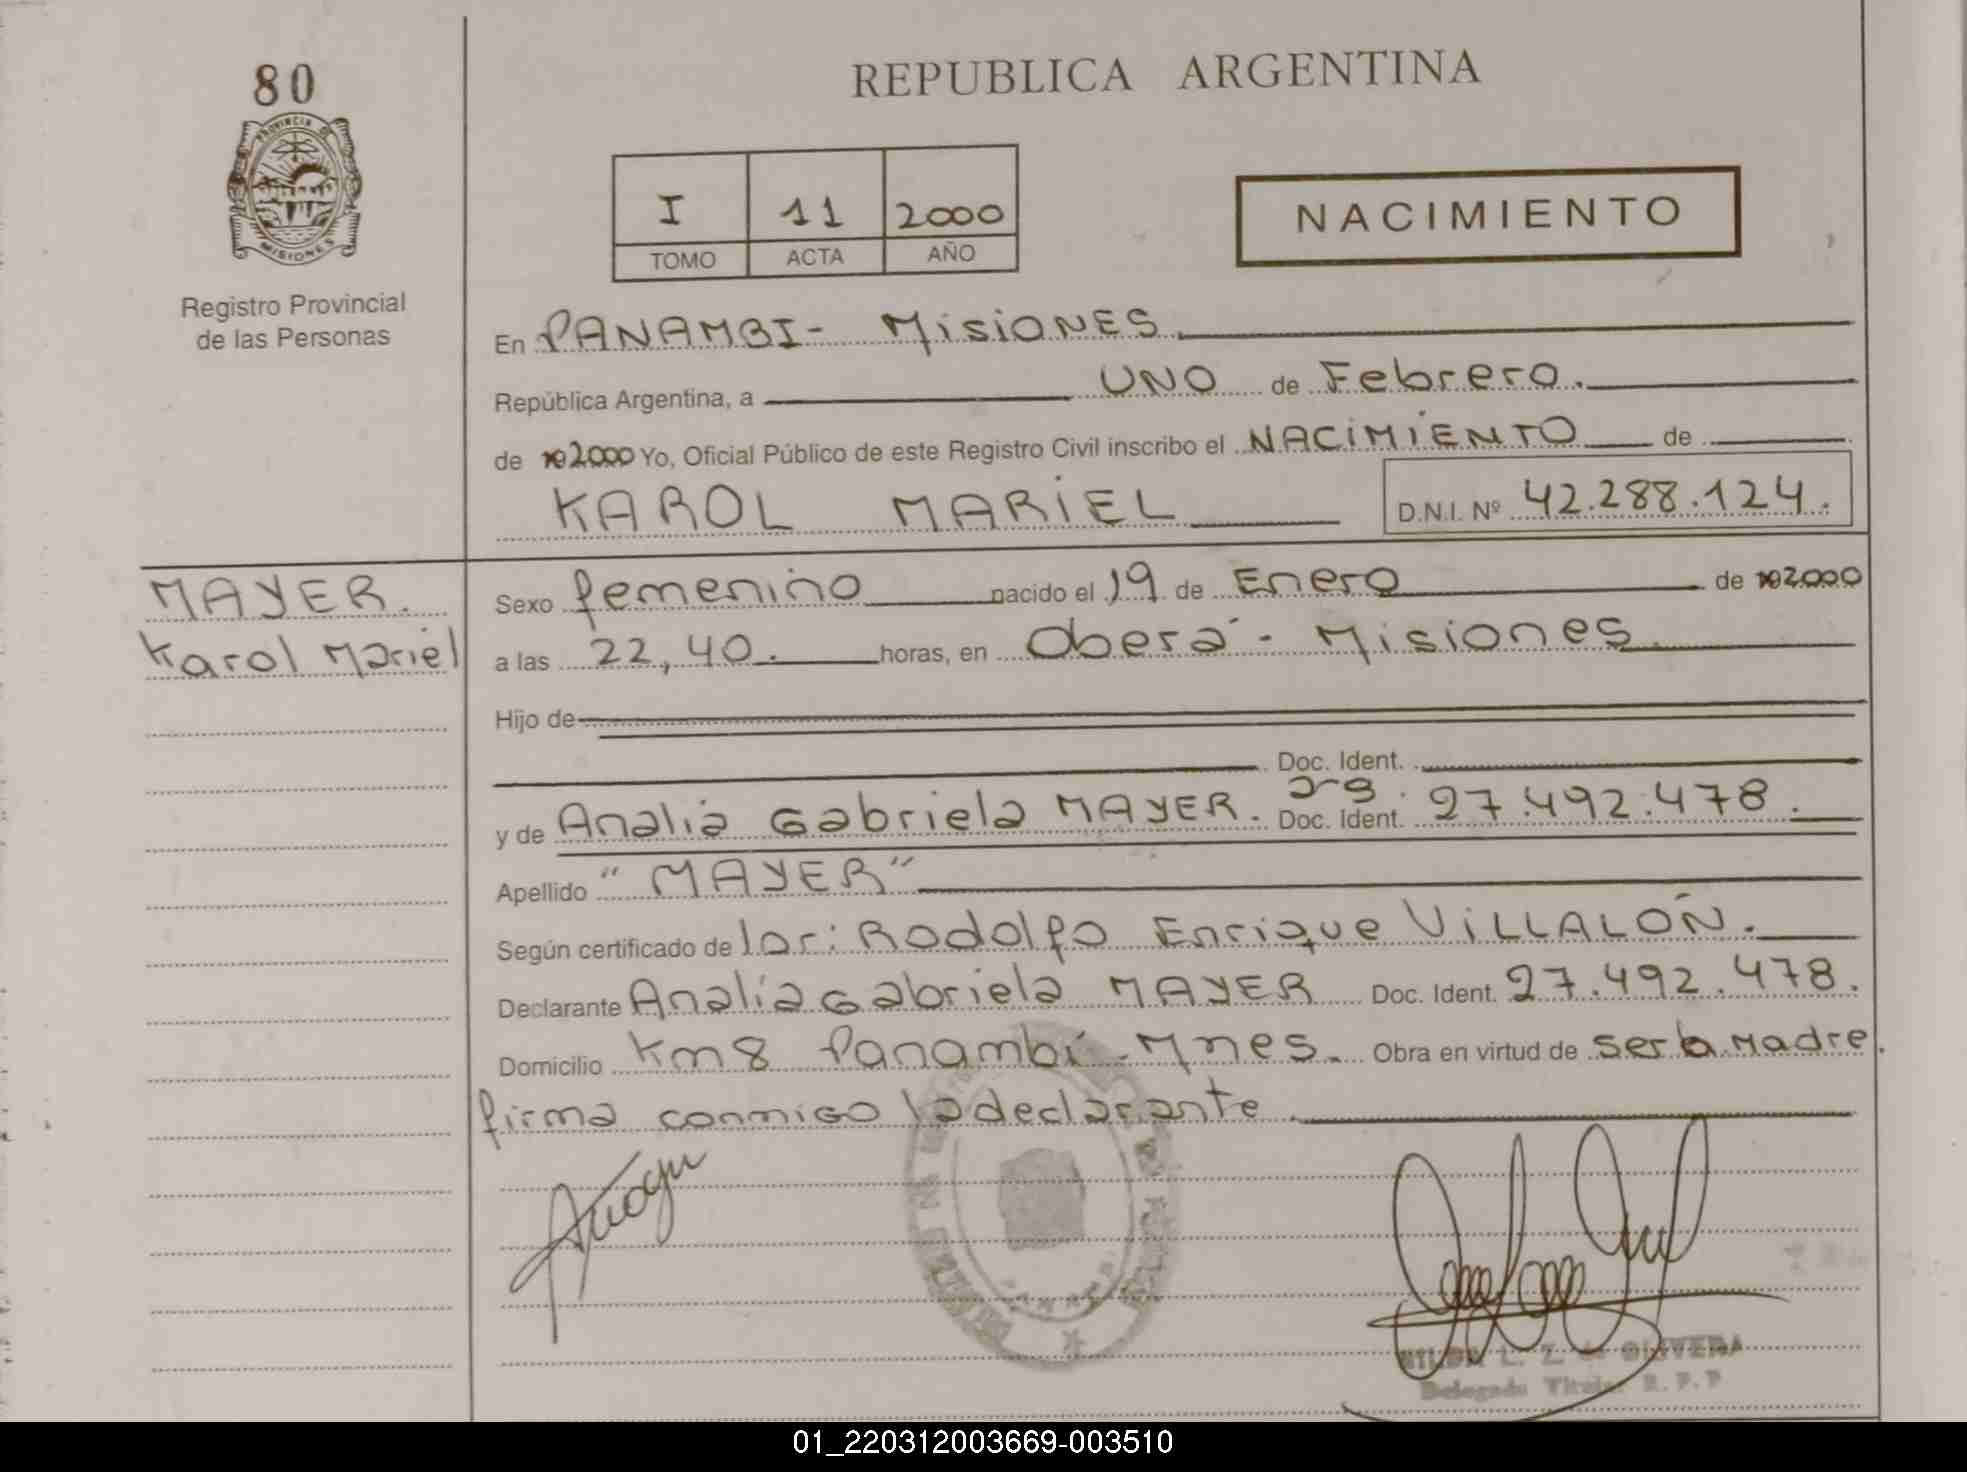 80
PROVINCIA DE
MISIONES
Registro Provincial
de las Personas
REPUBLICA ARGENTINA
I 11 2000
TOMO ACTA AÑO
NACIMIENTO
En PANAMBI- MisiONES
República Argentina, a UNO de Febrero.
de 2000 Yo, Oficial Público de este Registro Civil inscribo el NACiMiENTO de
KAROL MARiEL D.N.I. Nº 42.288.124.
MAYER.
Karol Mariel
Sexo femenino nacido el 19 de Enero de 2000
a las 22,40. horas, en Oberá - Misiones.
Hijo de
Doc. Ident.
y de Analia Gabriela MAYER. Doc. Ident. 27.492.478.
Apellido "MAYER"
Según certificado de Rodolfo Enrique ViLLALON.
Declarante Analía Gabriela MAYER Doc. Ident. 27.492.478.
Domicilio Km8 Panambí - Mnes. Obra en virtud de ser la Madre.
firma conmigo la declarante.
L. Z. de OLIVERA
Delegada Titular R.P.P
01_220312003669-003510